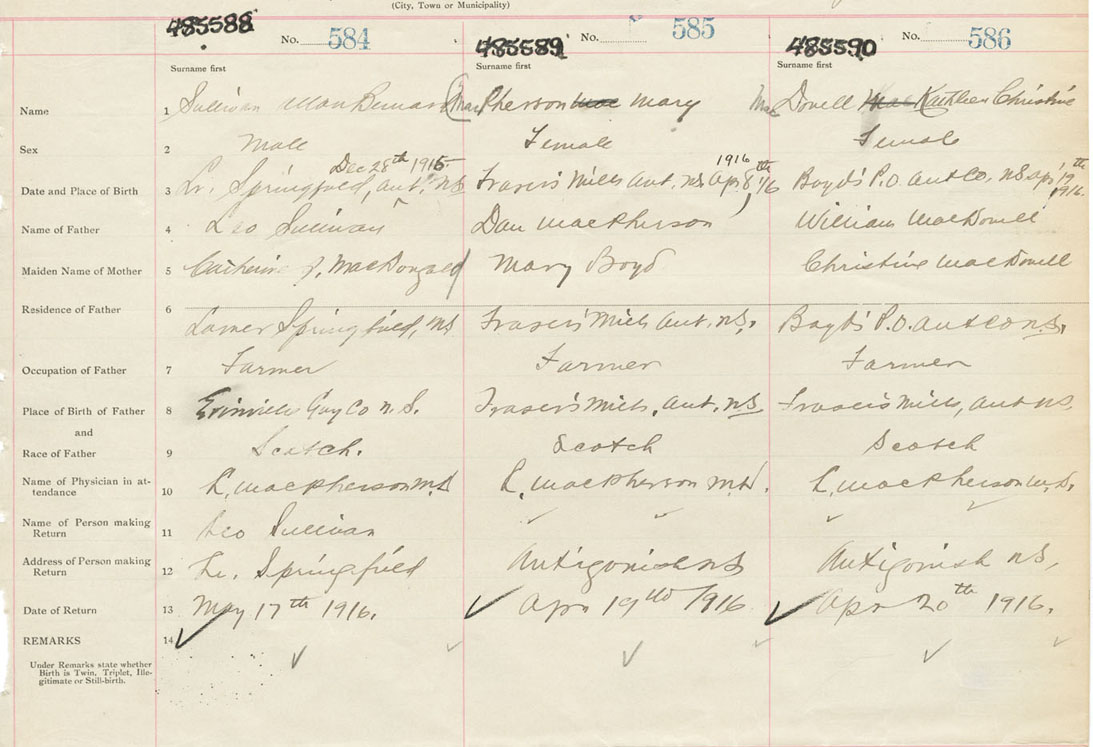 (City, Town or Municipality)
485588 No. 584 485589 No. 585 485590 No. 586
Surname first Surname first Surname first
Name 1 Sullivan Bernard MacPherson Mary MacDovell Kathleen Christine
Sex 2 Male Female Female
Dec 28th 1915 1916
Date and Place of Birth 3 Lr. Springfield, Ant. N.S Frasers Mills Ant. N.S Apr 8th 1/6 Boyd's P.O. Ant Co. N.S Apr 19th 1916.
Name of Father 4 Leo Sullivan Dan MacPherson William MacDovell
Maiden Name of Mother 5 Catherine J, MacDongald Mary Boyd Christine MacDovell
Residence of Father 6 Lower Springfield, N.S Frasers Mills Ant. N.S. Boyd's P.O. Ant Co N.S.
Occupation of Father 7 Farmer Farmer Farmer
Place of Birth of Father 8 Erinville Guy Co N.S. Frasers Mills, Ant. N.S Frasers Mills, Ant N.S.
and
Race of Father 9 Scotch. Scotch Scotch
Name of Physician in at-
tendance 10 MacPherson M.D MacPherson M.D. MacPherson M.D.
Name of Person making
Return 11 Leo Sullivan
Address of Person making
Return 12 Lr. Springfield Antigonish N.S Antigonish N.S.
Date of Return 13 May 17th 1916. Apr 19th 1916 Apr 20th 1916.
REMARKS 14
Under Remarks state whether
Birth is Twin. Triplet, Ille-
gitimate or Still-birth.